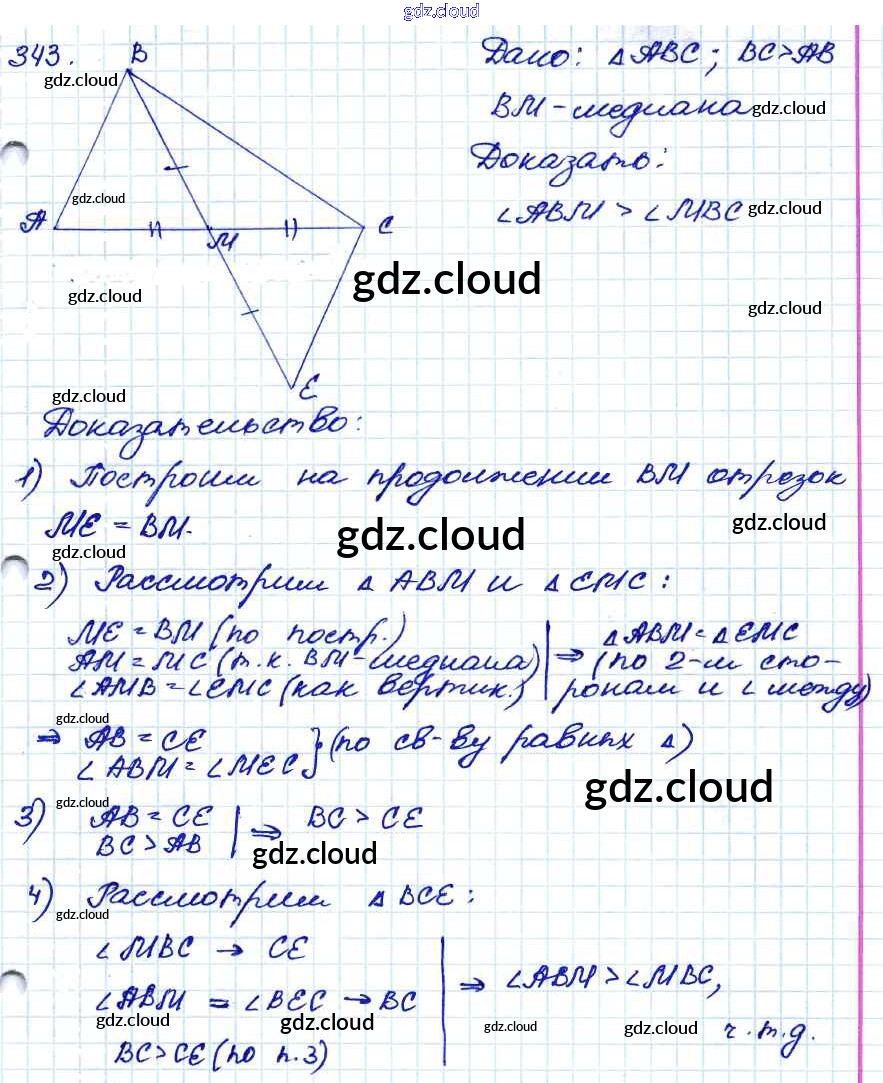 gdz.cloud
343.
B
gdz.cloud
Дано: △ ABC; BC > AB
BM - медиана gdz.cloud
Доказать:
∠ABM > ∠MBC gdz.cloud
gdz.cloud
A
M
C
gdz.cloud
gdz.cloud
gdz.cloud
gdz.cloud
E
Доказательство:
1) Построим на продолжении BM отрезок
ME = BM.
gdz.cloud
gdz.cloud
gdz.cloud
2) Рассмотрим △ ABM и △ EMC:
ME = BM (по постр.)
AM = MC (т.к. BM - медиана)
∠AMB = ∠EMC (как вертик.)
⇒ △ABM = △EMC
(по 2-м сто-
ронам и ∠ между)
gdz.cloud
⇒ AB = CE
∠ABM = ∠MEC } (по св-ву равных △)
gdz.cloud
gdz.cloud
3) AB = CE
BC > AB
⇒ BC > CE
gdz.cloud
4) Рассмотрим △ BCE:
gdz.cloud
∠MBC → CE
∠ABM = ∠BEC → BC
gdz.cloud
gdz.cloud
BC > CE (по п.3)
⇒ ∠ABM > ∠MBC,
gdz.cloud
gdz.cloud
ч.т.д.